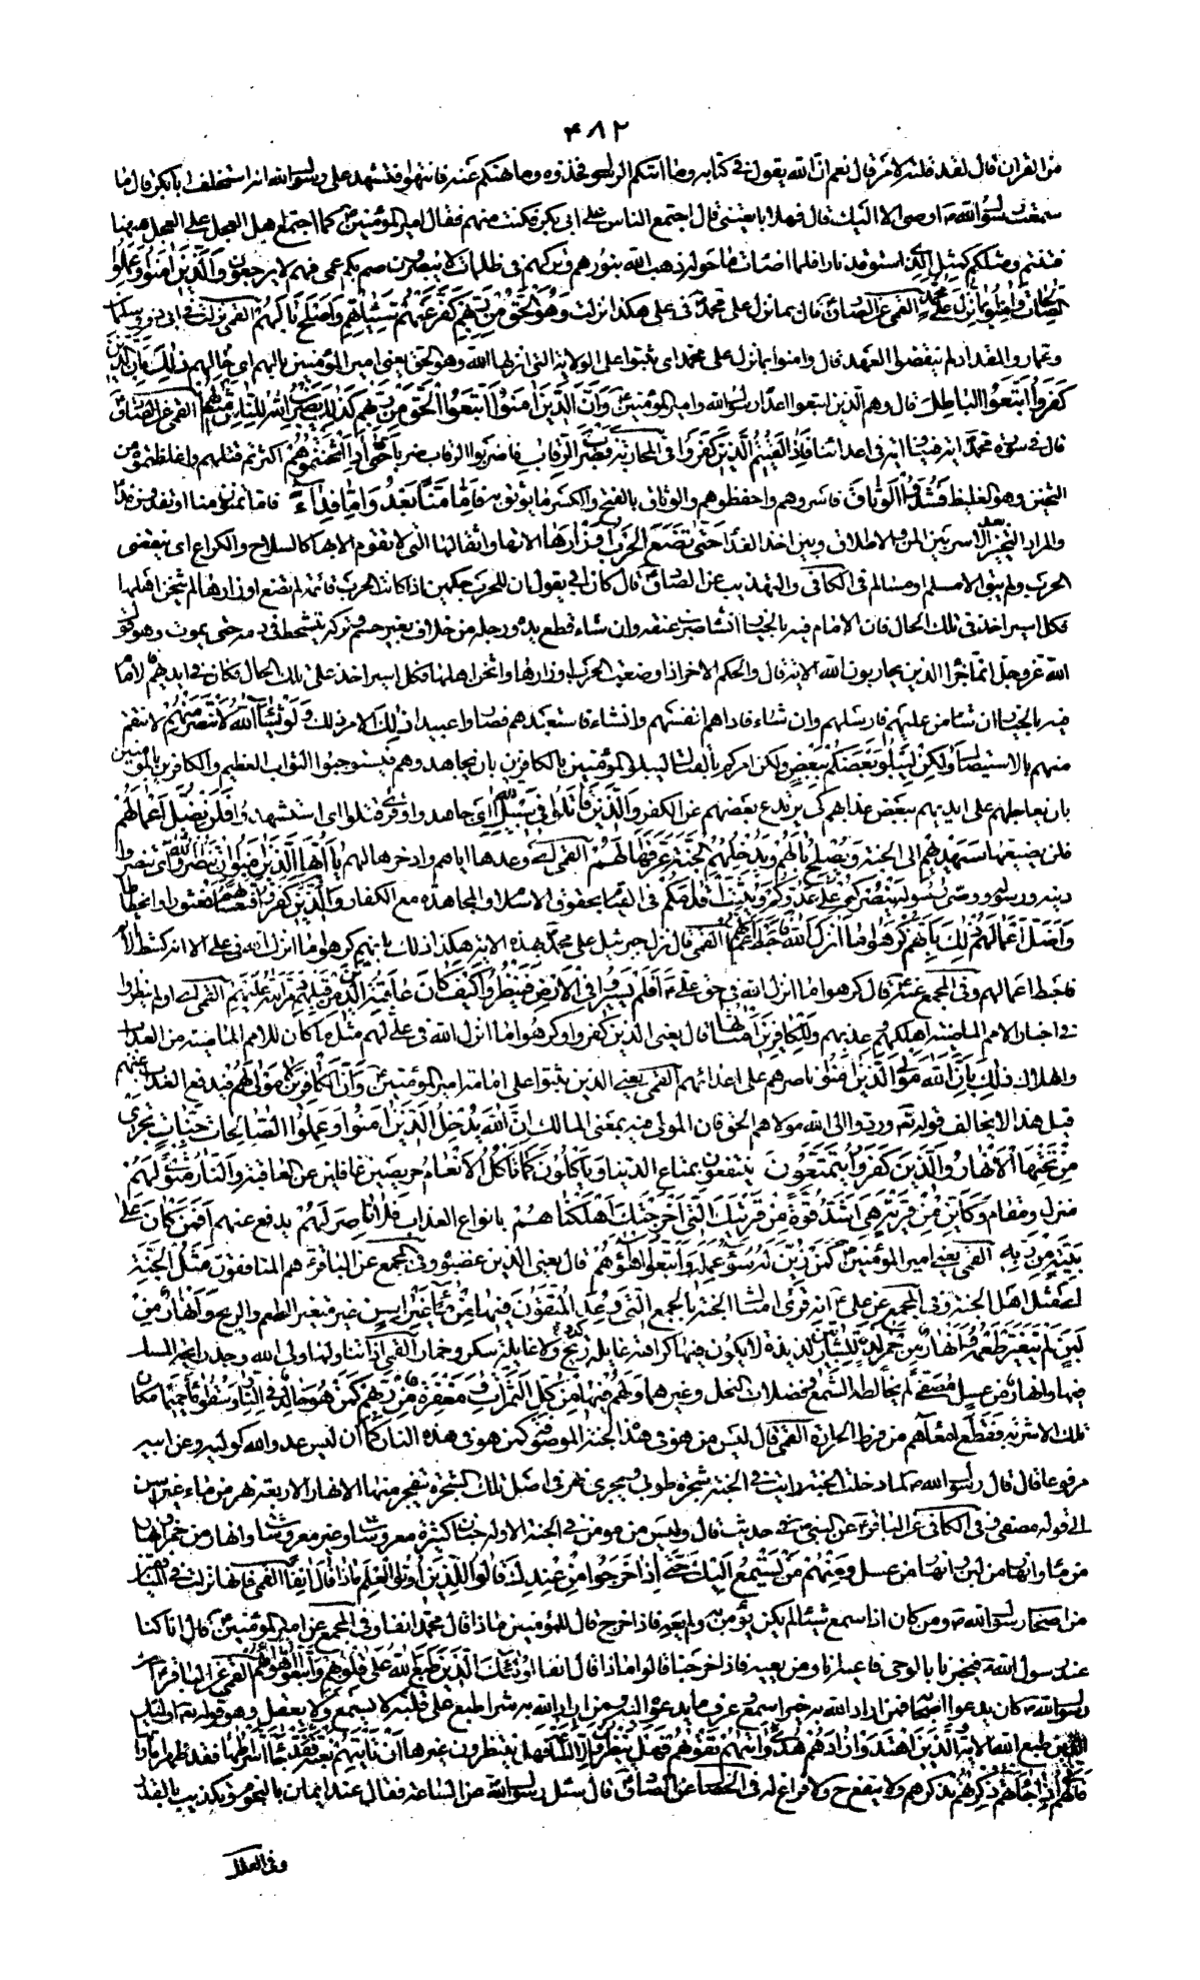 ۴۸۲
من القران قال لقد قلته لامر قال نعم ان الله يقول في كتابه وما اتيكم الرسول فخذوه وما نهيكم عنه فانتهوا فتشهد على رسول الله انه استخلف ابا بكر قال ما
سمعت رسول الله اوصى الا اليك قال فهلا بايعتني قال اجتمع الناس على ابي بكر فكنت منهم فقال امير المؤمنين كما اجتمع اهل العجل على العجل ههنا
فتنتم ومثلكم كمثل الذي استوقد نارا فلما اضائت ما حوله ذهب الله بنورهم وتركهم في ظلمات لا يبصرون صم بكم عمي فهم لا يرجعون والذين امنوا وعملوا
الصالحات وامنوا بما نزل على محمد القمي عن الصادق قال بما نزل على محمد في علي هكذا نزلت وهو الحق من ربهم كفر عنهم سيئاتهم واصلح بالهم القمي نزلت في ابي ذر وسلمان
وعمار والمقداد لم ينقضوا العهد قال وامنوا بما نزل على محمد اي ثبتوا على الولاية التي انزلها الله وهو الحق يعني امير المؤمنين بالهم اي حالهم ذلك بان الذين
كفروا اتبعوا الباطل قال وهم الذين اتبعوا اعداء رسول الله وامير المؤمنين وان الذين امنوا اتبعوا الحق من ربهم كذلك يضرب الله للناس امثالهم القمي عن الصادق
قال في سورة محمد اية فينا واية في اعدائنا فاذا لقيتم الذين كفروا في المحاربة فضرب الرقاب فاضربوا الرقاب ضربا حتى اذا اثخنتموهم اكثرتم قتلهم واغلظتموه من
الثخين وهو الغليظ فشدوا الوثاق فاسروهم واحفظوهم والوثاق بالفتح والكسر ما يوثق به فاما منا بعد واما فداء فاما تمنون منا او تفدون فداء
والمراد التخيير بعد الاسر بين المن والاطلاق وبين اخذ الفداء حتى تضع الحرب اوزارها الاتها واثقالها التي لا تقوم الا بها كالسلاح والكراع اي ينقضي
الحرب ولم يبق الا مسلم او مسالم في الكافي والتهذيب عن الصادق قال كان ابي يقول ان للحرب حكمين اذا كانت الحرب قائمة لم تضع اوزارها لم يثخن اهلها
فكل اسير اخذ في تلك الحال فان الامام فيه بالخيار ان شاء ضرب عنقه وان شاء قطع يده ورجله من خلاف بغير حسم وتركه يتشحط في دمه حتى يموت وهو قول
الله عز وجل انما جزاء الذين يحاربون الله الاية قال والحكم الاخر اذا وضعت الحرب اوزارها واثخن اهلها فكل اسير اخذ على تلك الحال فكان في ايديهم فالامام
فيه بالخيار ان شاء من عليهم فارسلهم وان شاء فاداهم انفسهم وان شاء استعبدهم فصاروا عبيدا ذلك الامر ذلك ولو يشاء الله لانتصر منهم لانتقم
منهم بالاستيصال ولكن ليبلو بعضكم ببعض ولكن امركم بالقتال ليبلو المؤمنين بالكافرين بان يجاهدوهم فيستوجبوا الثواب العظيم والكافرين بالمؤمنين
بان يعاجلهم على ايديهم ببعض عذابهم كي يرتدع بعضهم عن الكفر والذين قاتلوا في سبيل الله اي جاهدوا وقرئ قتلوا اي استشهدوا فلن يضل اعمالهم
فلن يضيعها سيهديهم الى الجنة ويصلح بالهم ويدخلهم الجنة عرفها لهم القمي اي وعدها اياهم وادخرها لهم يا ايها الذين امنوا ان تنصروا الله ان تنصروا
دينه ورسوله ووصي رسوله ينصركم على عدوكم ويثبت اقدامكم في القيام بحقوق الاسلام والمجاهدة مع الكفار والذين كفروا فتعسا لهم فعثورا وانحطاطا
واضل اعمالهم ذلك بانهم كرهوا ما انزل الله فاحبط اعمالهم القمي قال نزل جبرئيل على محمد بهذه الاية هكذا ذلك بانهم كرهوا ما انزل الله في علي الا انه كشط الاسم
فاحبط اعمالهم وفي المجمع عنه قال كرهوا ما انزل الله في حق علي افلم يسيروا في الارض فينظروا كيف كان عاقبة الذين من قبلهم دمر الله عليهم القمي اي اولم ينظروا
في اخبار الامم الماضية اهلكهم وعذبهم وللكافرين امثالها قال يعني الذين كفروا وكرهوا ما انزل الله في علي لهم مثل ما كان للامم الماضية من العذاب
والهلاك ذلك بان الله مولى الذين امنوا ناصرهم على اعدائهم القمي يعني الذين ثبتوا على امامة امير المؤمنين وان الكافرين لا مولى لهم فيدفع العذاب عنهم
قيل هذا لا يخالف قوله وردوا الى الله مولاهم الحق فان المولى فيه بمعنى المالك ان الله يدخل الذين امنوا وعملوا الصالحات جنات تجري
من تحتها الانهار والذين كفروا يتمتعون ينتفعون بمتاع الدنيا وياكلون كما تاكل الانعام حريصين غافلين عن العاقبة والنار مثوى لهم
منزل ومقام وكاين من قرية هي اشد قوة من قريتك التي اخرجتك اهلكناهم بانواع العذاب فلا ناصر لهم يدفع عنهم افمن كان على
بينة من ربه القمي يعني امير المؤمنين كمن زين له سوء عمله واتبعوا اهوائهم قال يعني الذين غصبوه وفي المجمع عن الباقر هم المنافقون مثل الجنة
امثل اهل الجنة وفي المجمع عن علي انه قرئ امثال الجنة بالجمع التي وعد المتقون فيها انهار من ماء غير اسن غير متغير الطعم والريح وانهار من
لبن لم يتغير طعمه وانهار من خمر لذة للشاربين لذيذة لا يكون فيها كراهة غايلة ريح ولا غايلة سكر وخمار القمي اذا تناولها ولي الله وجد رايحة المسك
فيها وانهار من عسل مصفى لم يخالطه الشمع وفضلات النحل وغيرهما ولهم فيها من كل الثمرات ومغفرة من ربهم كمن هو خالد في النار وسقوا ماء حميما مكان
تلك الاشربة فقطع امعائهم من فرط الحرارة القمي قال ليس من هو في هذه الجنة الموصوفة كمن هو في هذه النار كما ان ليس عدو الله كوليه وعن ابيه
مرفوعا قال قال رسول الله لما دخلت الجنة رايت في الجنة شجرة طوبى ويجري نهر في اصل تلك الشجرة تنفجر منها الانهار الاربعة نهر من ماء غير اسن
الى قوله مصفى وفي الكافي عن الباقر عن النبي في حديث قال وليس من مؤمن في الجنة الا وله جنان كثيرة معروشات وغير معروشات وانهار من خمر وانهار
من ماء وانهار من لبن وانهار من عسل ومنهم من يستمع اليك حتى اذا خرجوا من عندك قالوا للذين اوتوا العلم ماذا قال انفا القمي فانها نزلت في المنافقين
من اصحاب رسول الله ومن كان اذا سمع شيئا لم يكن يؤمن به ولم يعه فاذا خرج قال للمؤمنين ماذا قال محمد انفا وفي المجمع عن امير المؤمنين قال انا كنا
عند رسول الله فيخبرنا بالوحي فاعيه انا ومن يعيه فاذا خرجنا قالوا ماذا قال انفا اولئك الذين طبع الله على قلوبهم واتبعوا اهوائهم القمي عن الباقر ان
رسول الله كان يدعو اصحابه فمن اراد الله به خيرا سمع وعرف ما يدعوه اليه ومن اراد الله به شرا طبع على قلبه لا يسمع ولا يعقل وهو قوله اولئك
الذين طبع الله الاية والذين اهتدوا زادهم هدى واتيهم تقويهم فهل ينظرون الا الساعة فهل ينتظرون غيرها ان تاتيهم بغتة فقد جاء اشراطها فقد ظهر اماراتها
فانى لهم اذا جائتهم ذكريهم تذكرهم ولا ينفع ح ولا فراغ له في الخصال عن الصادق قال سئل رسول الله عن الساعة فقال عند ايمان بالنجوم وتكذيب بالقدر
وفي العلل